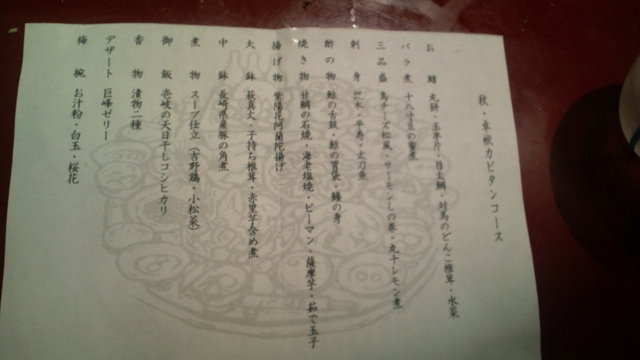 秋・卓袱カピタンコース
お鰭 丸餅・玉子片・目太鯛 対馬のどんこ椎茸・水菜
バラ煮 十八寸豆の蜜煮
三品盛 鳥チーズ松風・サーモンしの巻・丸十レモン煮
刺身 ・平寿・太刀魚
酢の物 鯨の舌鼓・鯨の胃袋・鱶の身
焼き物 甘鯛の石焼・海老塩焼・ピーマン・薩摩芋・茹で玉子
揚げ物 紫陽花阿蘭陀揚げ
大鉢 萩真丈・子持ち椎茸・赤里芋含め煮
中鉢 長崎県産豚の角煮
煮物 スープ仕立(吉野鶏・小松菜)
御飯 壱岐の天日干しコシヒカリ
香物 漬物二種
デザート 巨峰ゼリー
梅椀 お汁粉・白玉・桜花